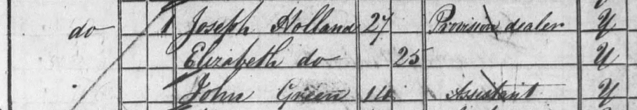 do 1 Joseph Holland 27 Provision dealer Y
Elizabeth do 25 Y
John Green 14 Assistant Y